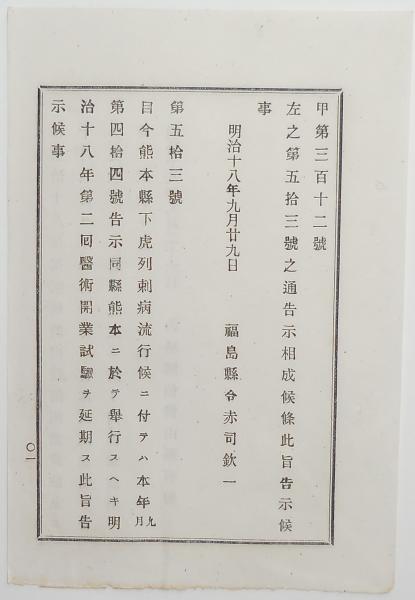 甲第三百十二號
左之第五拾三號之通告示相成候條此旨告示候
事
明治十八年九月廿九日 福島縣令赤司欽一
第五拾三號
目今熊本縣下虎列刺病流行候ニ付テハ本年九月
第四拾四號告示同縣熊本ニ於テ舉行スヘキ明
治十八年第二回醫術開業試驗ヲ延期ス此旨告
示候事
〇一